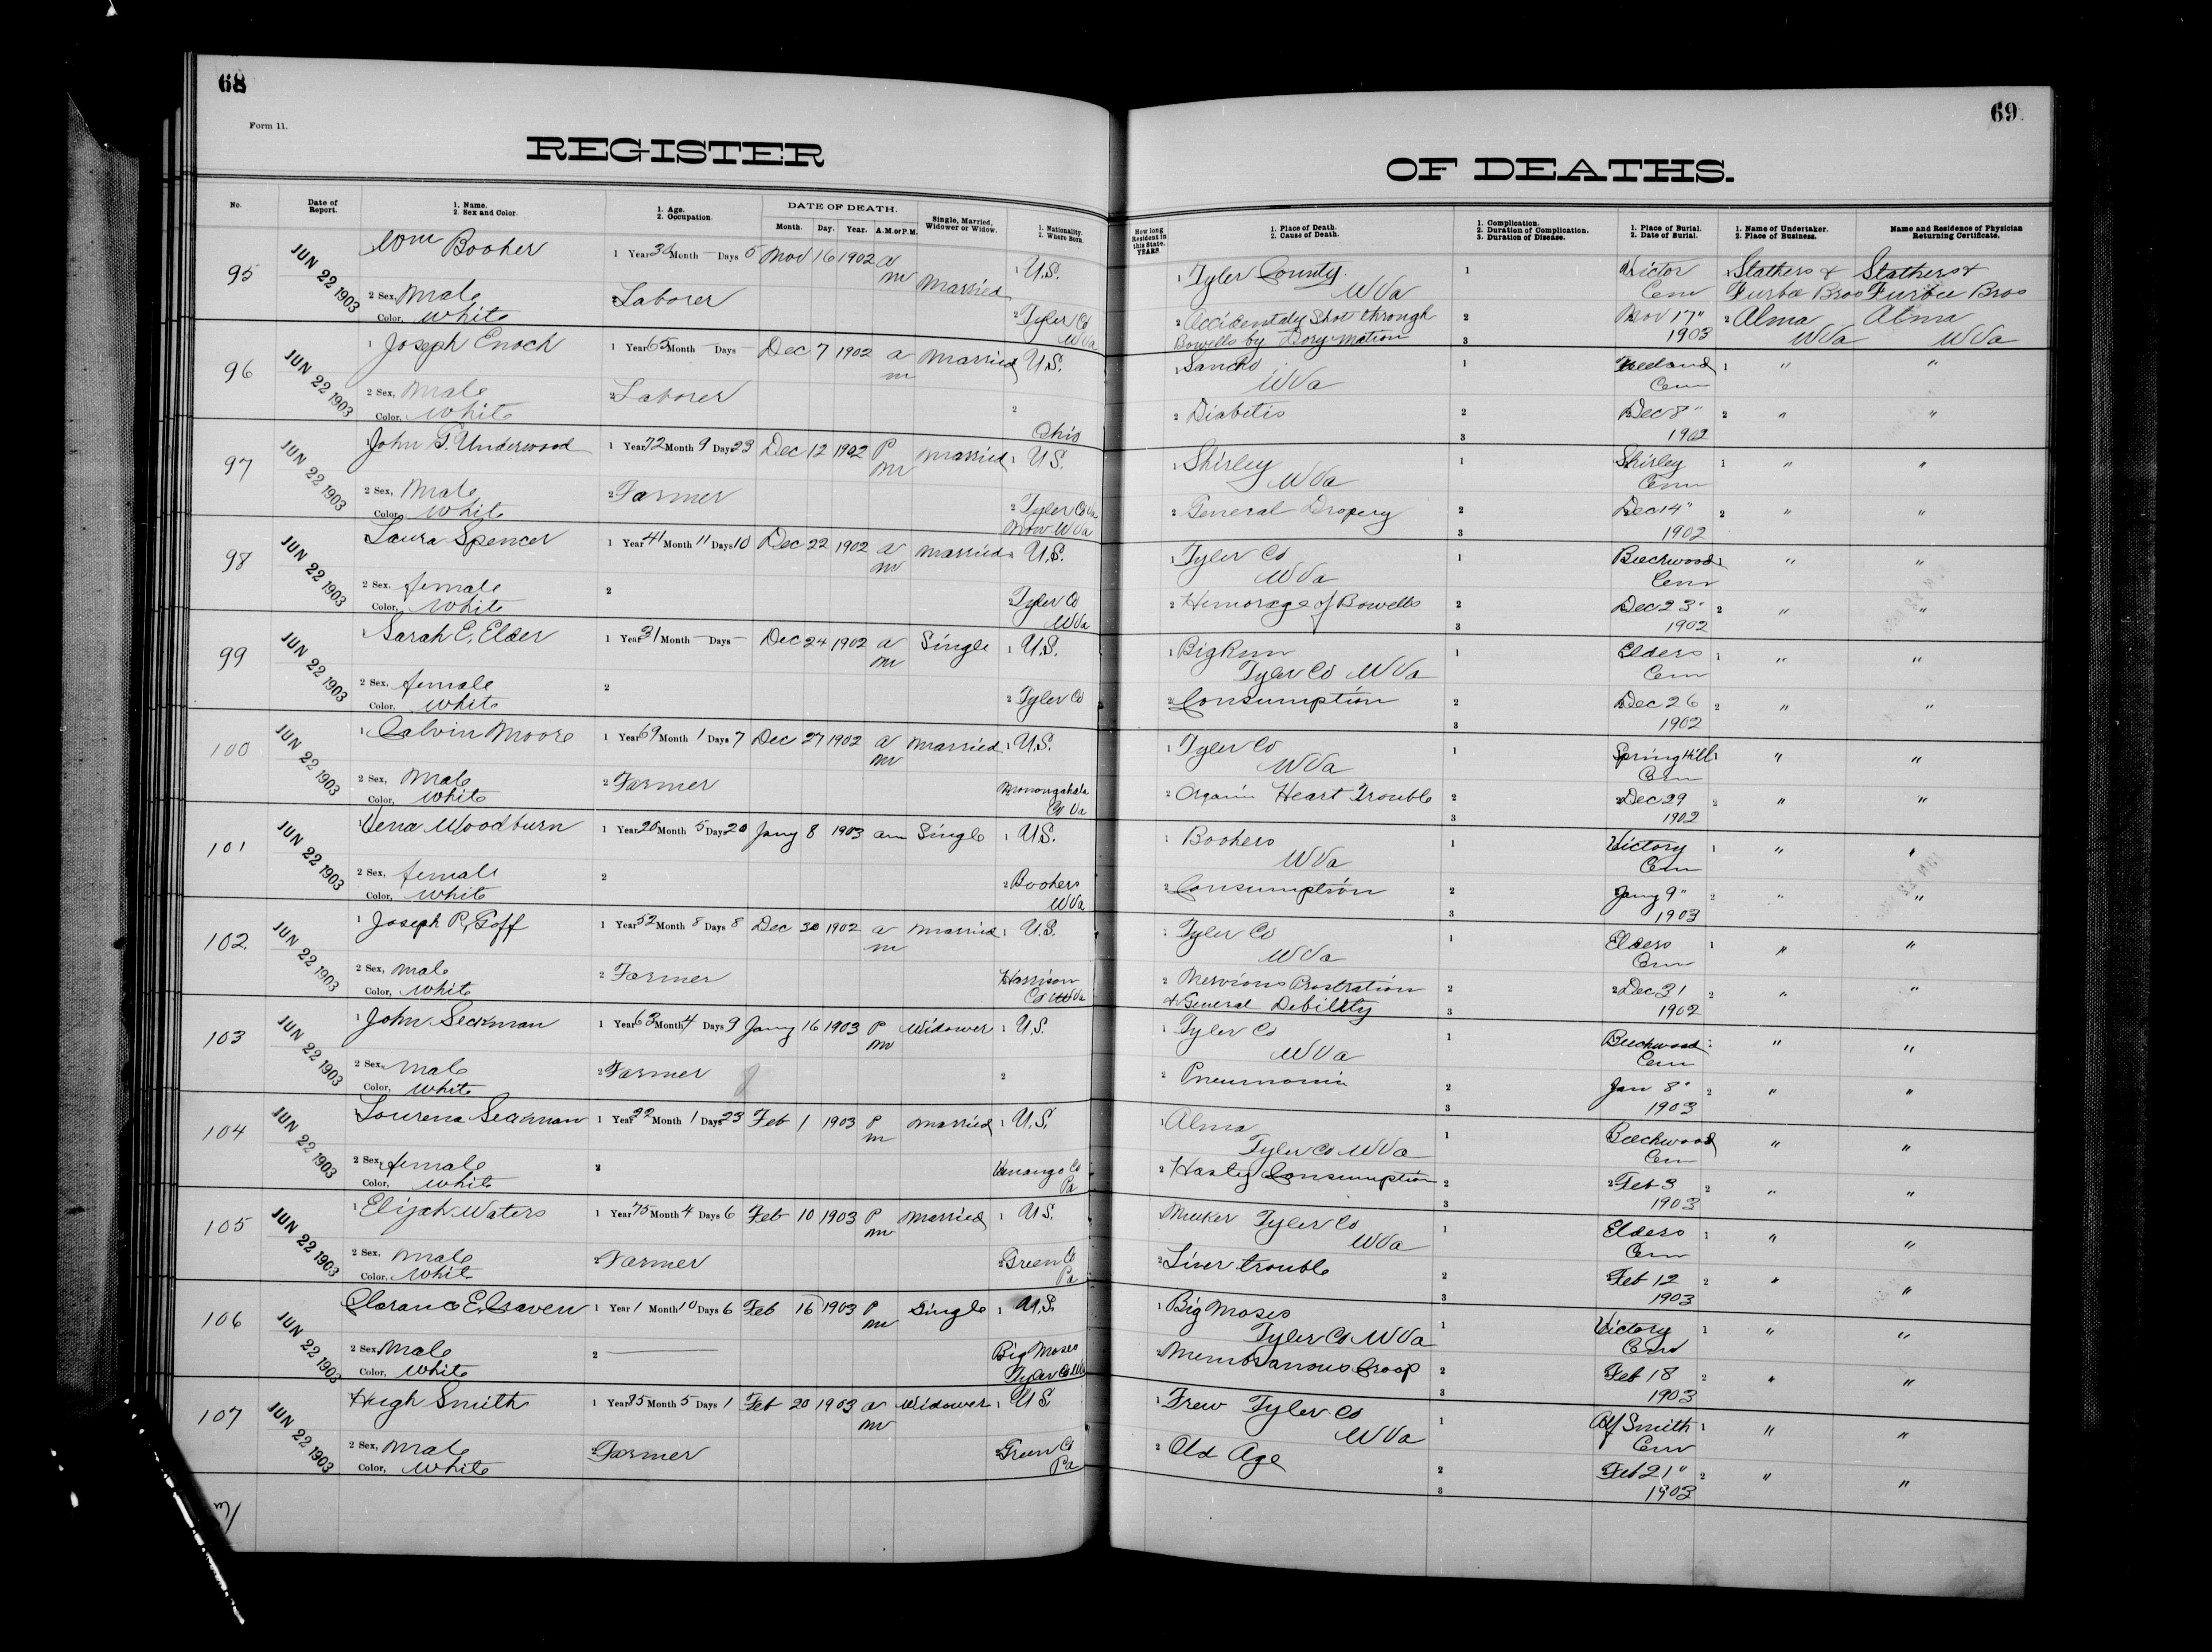 68
Form 11.
REGISTER
No.
Date of Report.
1. Name.
2. Sex and Color.
1. Age.
2. Occupation.
DATE OF DEATH.
Month. Day. Year. A.M. or P.M.
Single, Married, Widower or Widow.
1. Nationality.
2. Where Born.
95 JUN 22 1903 Wm Booher 1 Year 36 Month — Days 5 Nov 16 1902 a m Married 1 U.S.
2 Sex, Male 2 Laborer 2 Tyler Co
Color, White W Va
96 JUN 22 1903 1 Joseph Enoch 1 Year 65 Month — Days — Dec 7 1902 a m Married U.S.
2 Sex, Male 2 Laborer 2
Color, White Ohio
97 JUN 22 1903 1 John G. Underwood 1 Year 72 Month 9 Days 23 Dec 12 1902 P m Married 1 U.S.
2 Sex, Male 2 Farmer 2 Tyler Co Va
Color, White Now W Va
98 JUN 22 1903 Laura Spencer 1 Year 41 Month 11 Days 10 Dec 22 1902 a m Married U.S.
2 Sex. female 2 2 Tyler Co
Color, White W Va
99 JUN 22 1903 1 Sarah E. Elder 1 Year 31 Month — Days — Dec 24 1902 a m Single 1 U.S.
2 Sex. female 2 2 Tyler Co
Color. White
100 JUN 22 1903 1 Calvin Moore 1 Year 69 Month 1 Days 7 Dec 27 1902 a m Married 1 U.S.
2 Sex, Male 2 Farmer Monongahala
Color, White Co Va
101 JUN 22 1903 1 Vena Woodburn 1 Year 20 Month 5 Days 20 Jany 8 1903 am Single 1 U.S.
2 Sex, female 2 2 Boohers
Color, White W Va
102 JUN 22 1903 1 Joseph P. Goff 1 Year 52 Month 8 Days 8 Dec 30 1902 a m Married 1 U.S.
2 Sex, Male 2 Farmer Harrison
Color, White Co W Va
103 JUN 22 1903 1 John Seckman 1 Year 63 Month 4 Days 9 Jany 16 1903 P m Widower 1 U.S.
2 Sex, Male 2 Farmer 2
Color, White
104 JUN 22 1903 Lourena Seckman 1 Year 22 Month 1 Days 23 Feb 1 1903 P m Married 1 U.S.
2 Sex, female 2 Venango Co
Color, White Pa
105 JUN 22 1903 1 Elijah Waters 1 Year 75 Month 4 Days 6 Feb 10 1903 P m Married 1 U.S.
2 Sex, Male 2 Farmer 2 Green Co
Color. White Pa
106 JUN 22 1903 Clarance E. Craven 1 Year 1 Month 10 Days 6 Feb 16 1903 P m Single 1 U.S.
2 Sex, Male 2 — Big Moses
Color, White Tyler Co W Va
107 JUN 22 1903 Hugh Smith 1 Year 85 Month 5 Days 1 Feb 20 1903 a m Widower 1 U S
2 Sex, Male 2 Farmer 2 Green Co
Color, White Pa
69
OF DEATHS.
How long Resident in this State. YEARS.
1. Place of Death.
2. Cause of Death.
1. Complication.
2. Duration of Complication.
3. Duration of Disease.
1. Place of Burial.
2. Date of Burial.
1. Name of Undertaker.
2. Place of Business.
Name and Residence of Physician Returning Certificate.
1 Tyler County 1 Victor Stathers & Stathers &
W Va Cem Furbee Bros Furbee Bros
2 Accidentaly Shot through 2 Nov 17" 2 Alma Alma
Bowells by Dory Mation 3 1903 W Va W Va
1 Sancho 1 1 " "
W Va Cem
2 Diabetis 2 Dec 8" 2 " "
3 1902
1 Shirley 1 Shirley 1 " "
W Va Cem
2 General Dropsy 2 Dec 14" 2 " "
3 1902
1 Tyler Co 1 Beechwood " "
W Va Cem
2 Hemorage of Bowells 2 Dec 23" 2 " "
3 1902
1 Big Run 1 Elders 1 " "
Tyler Co W Va Cem
2 Consumption 2 Dec 26 2 " "
3 1902
1 Tyler Co 1 Spring Hill " "
W Va Cem
2 Organic Heart Trouble 2 2 Dec 29 2 " "
3 1902
Boohers 1 Victory 1 " "
W Va Cem
2 Consumption 2 Jany 9" 2 " "
3 1903
Tyler Co 1 Elders 1 " "
W Va Cem
2 Nervious Prostration 2 2 Dec 31 2 " "
& General Debility 3 1902
1 Tyler Co 1 Beechwood " "
W Va Cem
2 Pneumonia 2 Jan 8" 2 " "
3 1903
1 Alma 1 Beechwood " "
Tyler Co W Va Cem
2 Hasty Consumption 2 2 Feb 3 2 " "
3 1903
Meeker Tyler Co 1 Elders 1 " "
W Va Cem
2 Liver trouble 2 Feb 12 2 " "
3 1903
1 Big Moses 1 Victory 1 " "
Tyler Co W Va Cem
2 Membranous Croop 2 Feb 18 2 " "
3 1903
1 Frew Tyler Co 1 Alf Smith 1 " "
W Va Cem
2 Old Age 2 Feb 21" 2 " "
3 1903